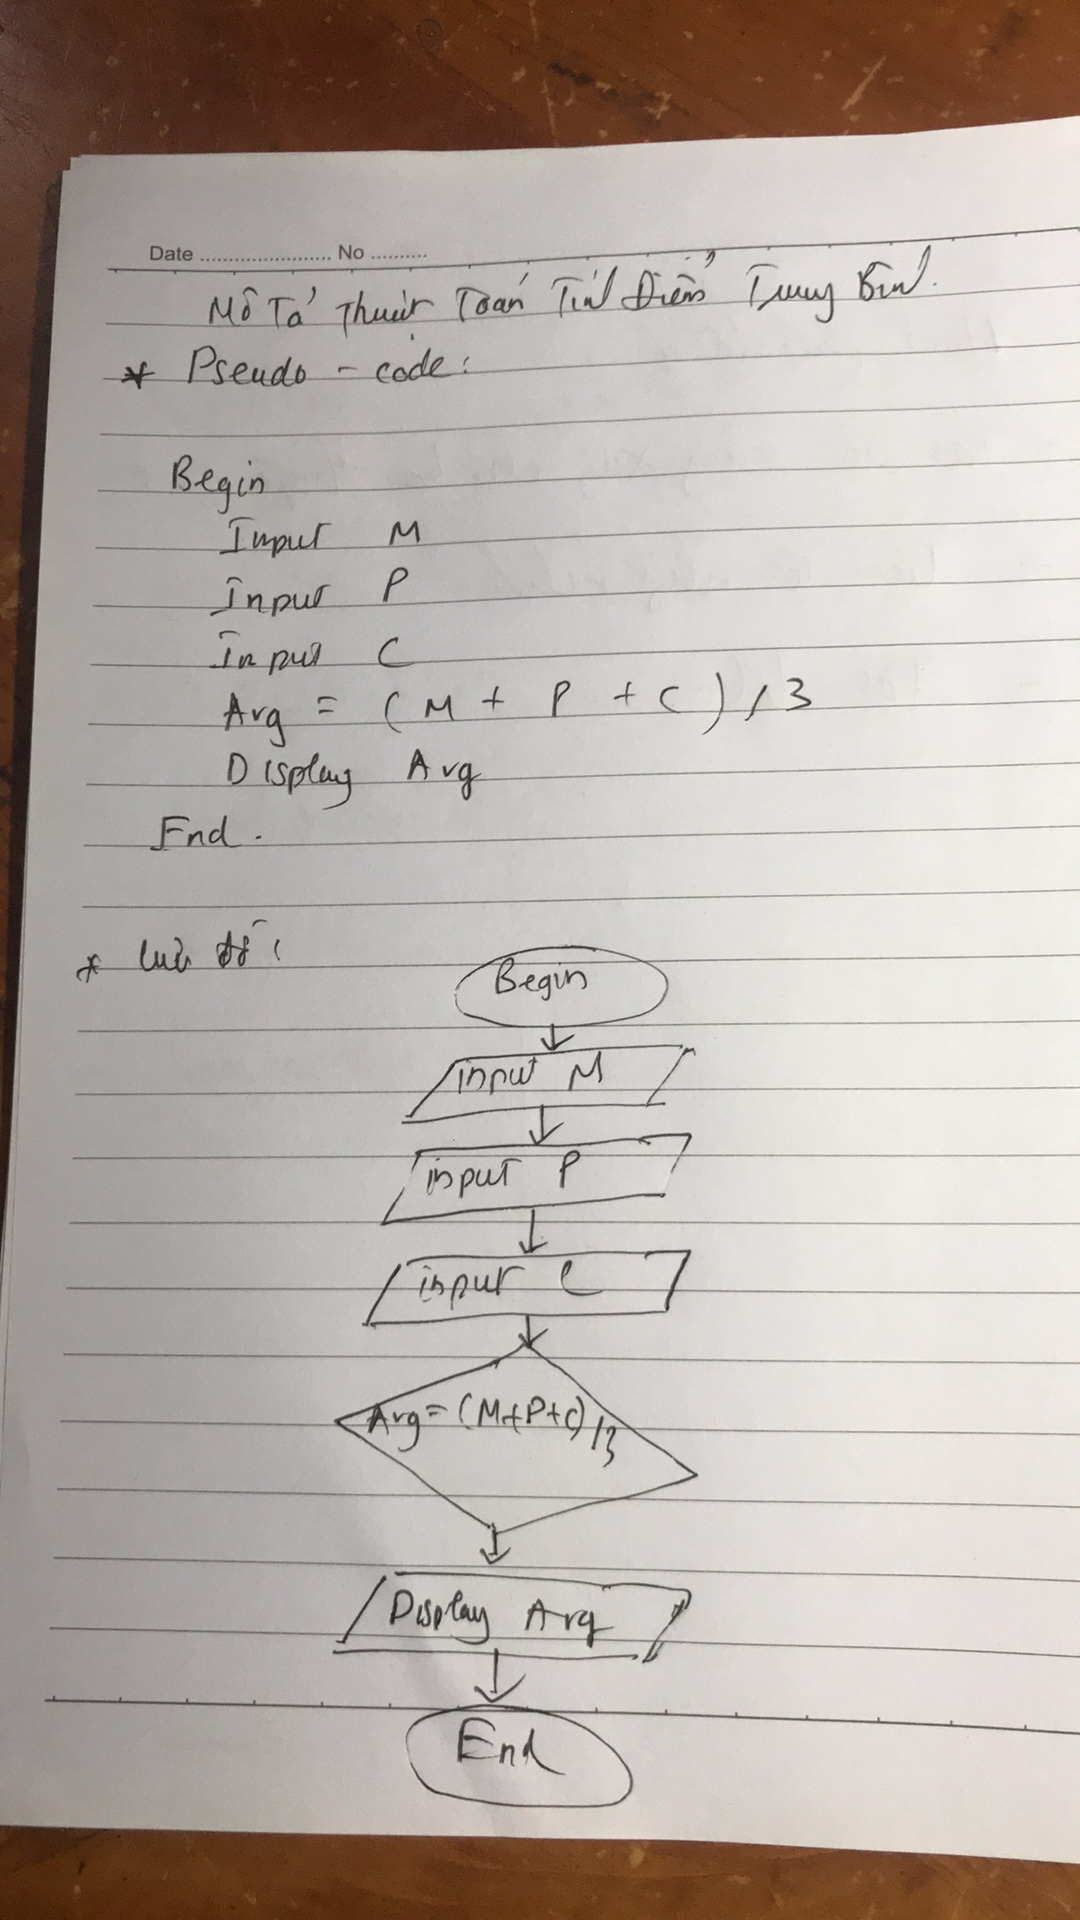 Date ........................ No ..........
Mô Tả Thuật Toán Tính Điểm Trung Bình.
* Pseudo - code:
Begin
Input M
Input P
Input C
Avg = (M + P + C) / 3
Display Avg
End.
* lưu đồ:
Begin
input M
input P
input C
Avg = (M+P+C)/3
Display Avg
End